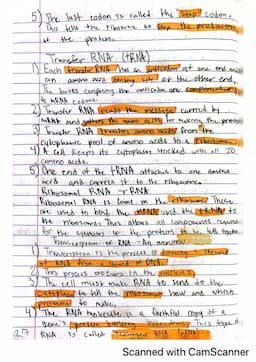 5) The last codon is called the stop codon.
This tells the ribosome to stop the production
of the protein.
Transfer RNA (tRNA)
1) Each transfer RNA has an anticodon at one end and
an amino acid binding site at the other end.
The bases comprising the anticodon are complementary
to mRNA codons.
2) Transfer RNA reads the message carried by
mRNA and gathers the amino acids for making the protein
3) Transfer RNA transfers amino acids from the
cytoplasmic pool of amino acids to a ribosome.
4) A cell keeps its cytoplasm stocked with all 20
amino acids.
5) One end of the tRNA attaches to one amino
acid and carries it to the ribosome.
Ribosomal RNA - rRNA
Ribosomal RNA is found in the ribosome. These
are used to bind the mRNA and the tRNA to
the ribosomes. This allows all components required
for the synthesis of the proteins to be held together
Transcription of RNA - An overview
1) Transcription is the process of forming a strand
of RNA from a strand of DNA.
2) This process occurs in the nucleus.
3) The cell must make RNA to send to the
cytoplasm to tell the ribosomes how and which
proteins to make.
4) The RNA molecule is a faithful copy of a
gene's protein building instructions. This type of
RNA is called messenger RNA (mRNA)
Scanned with CamScanner